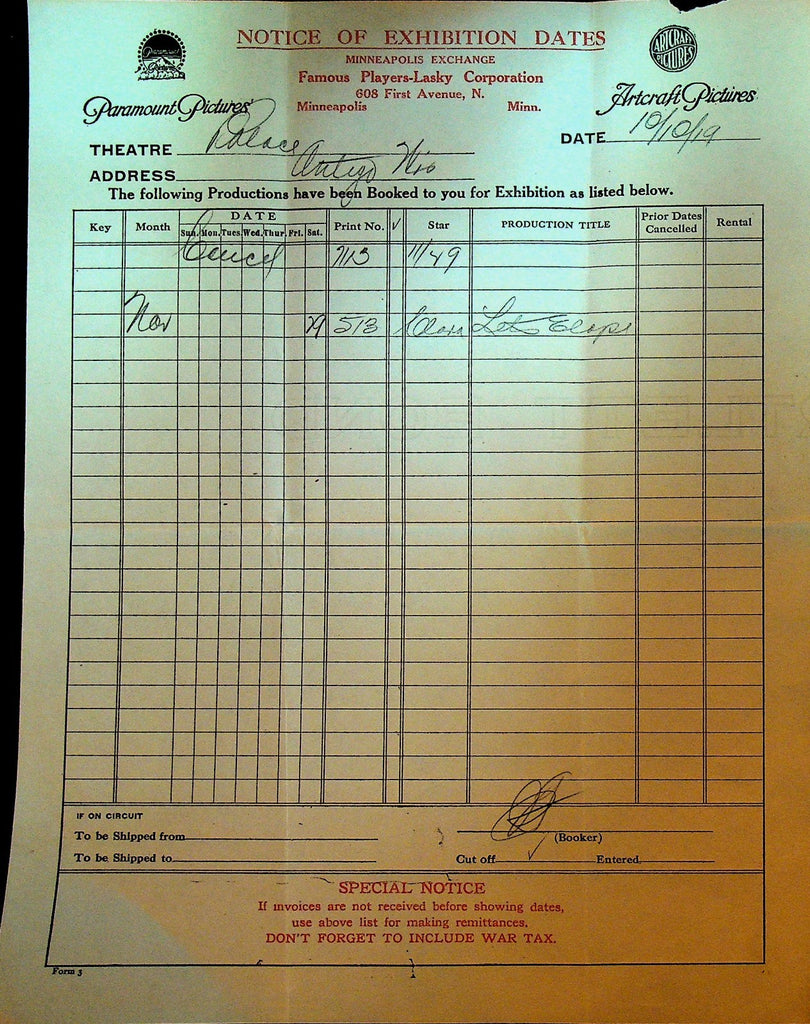 NOTICE OF EXHIBITION DATES
MINNEAPOLIS EXCHANGE
Famous Players-Lasky Corporation
608 First Avenue, N.
Minneapolis Minn.
Paramount Pictures
Paramount Pictures
ARTCRAFT PICTURES
Artcraft Pictures
THEATRE Palace DATE 10/10/19
ADDRESS Antigo Wis
The following Productions have been Booked to you for Exhibition as listed below.
Key Month DATE Print No. √ Star PRODUCTION TITLE Prior Dates Cancelled Rental
Sun. Mon. Tues. Wed. Thur. Fri. Sat.
Cancel 11/49
Nov 29 513 Let's Elope
IF ON CIRCUIT
To be Shipped from
(Booker)
To be Shipped to
Cut off √ Entered
SPECIAL NOTICE
If invoices are not received before showing dates,
use above list for making remittances.
DON'T FORGET TO INCLUDE WAR TAX.
Form 3